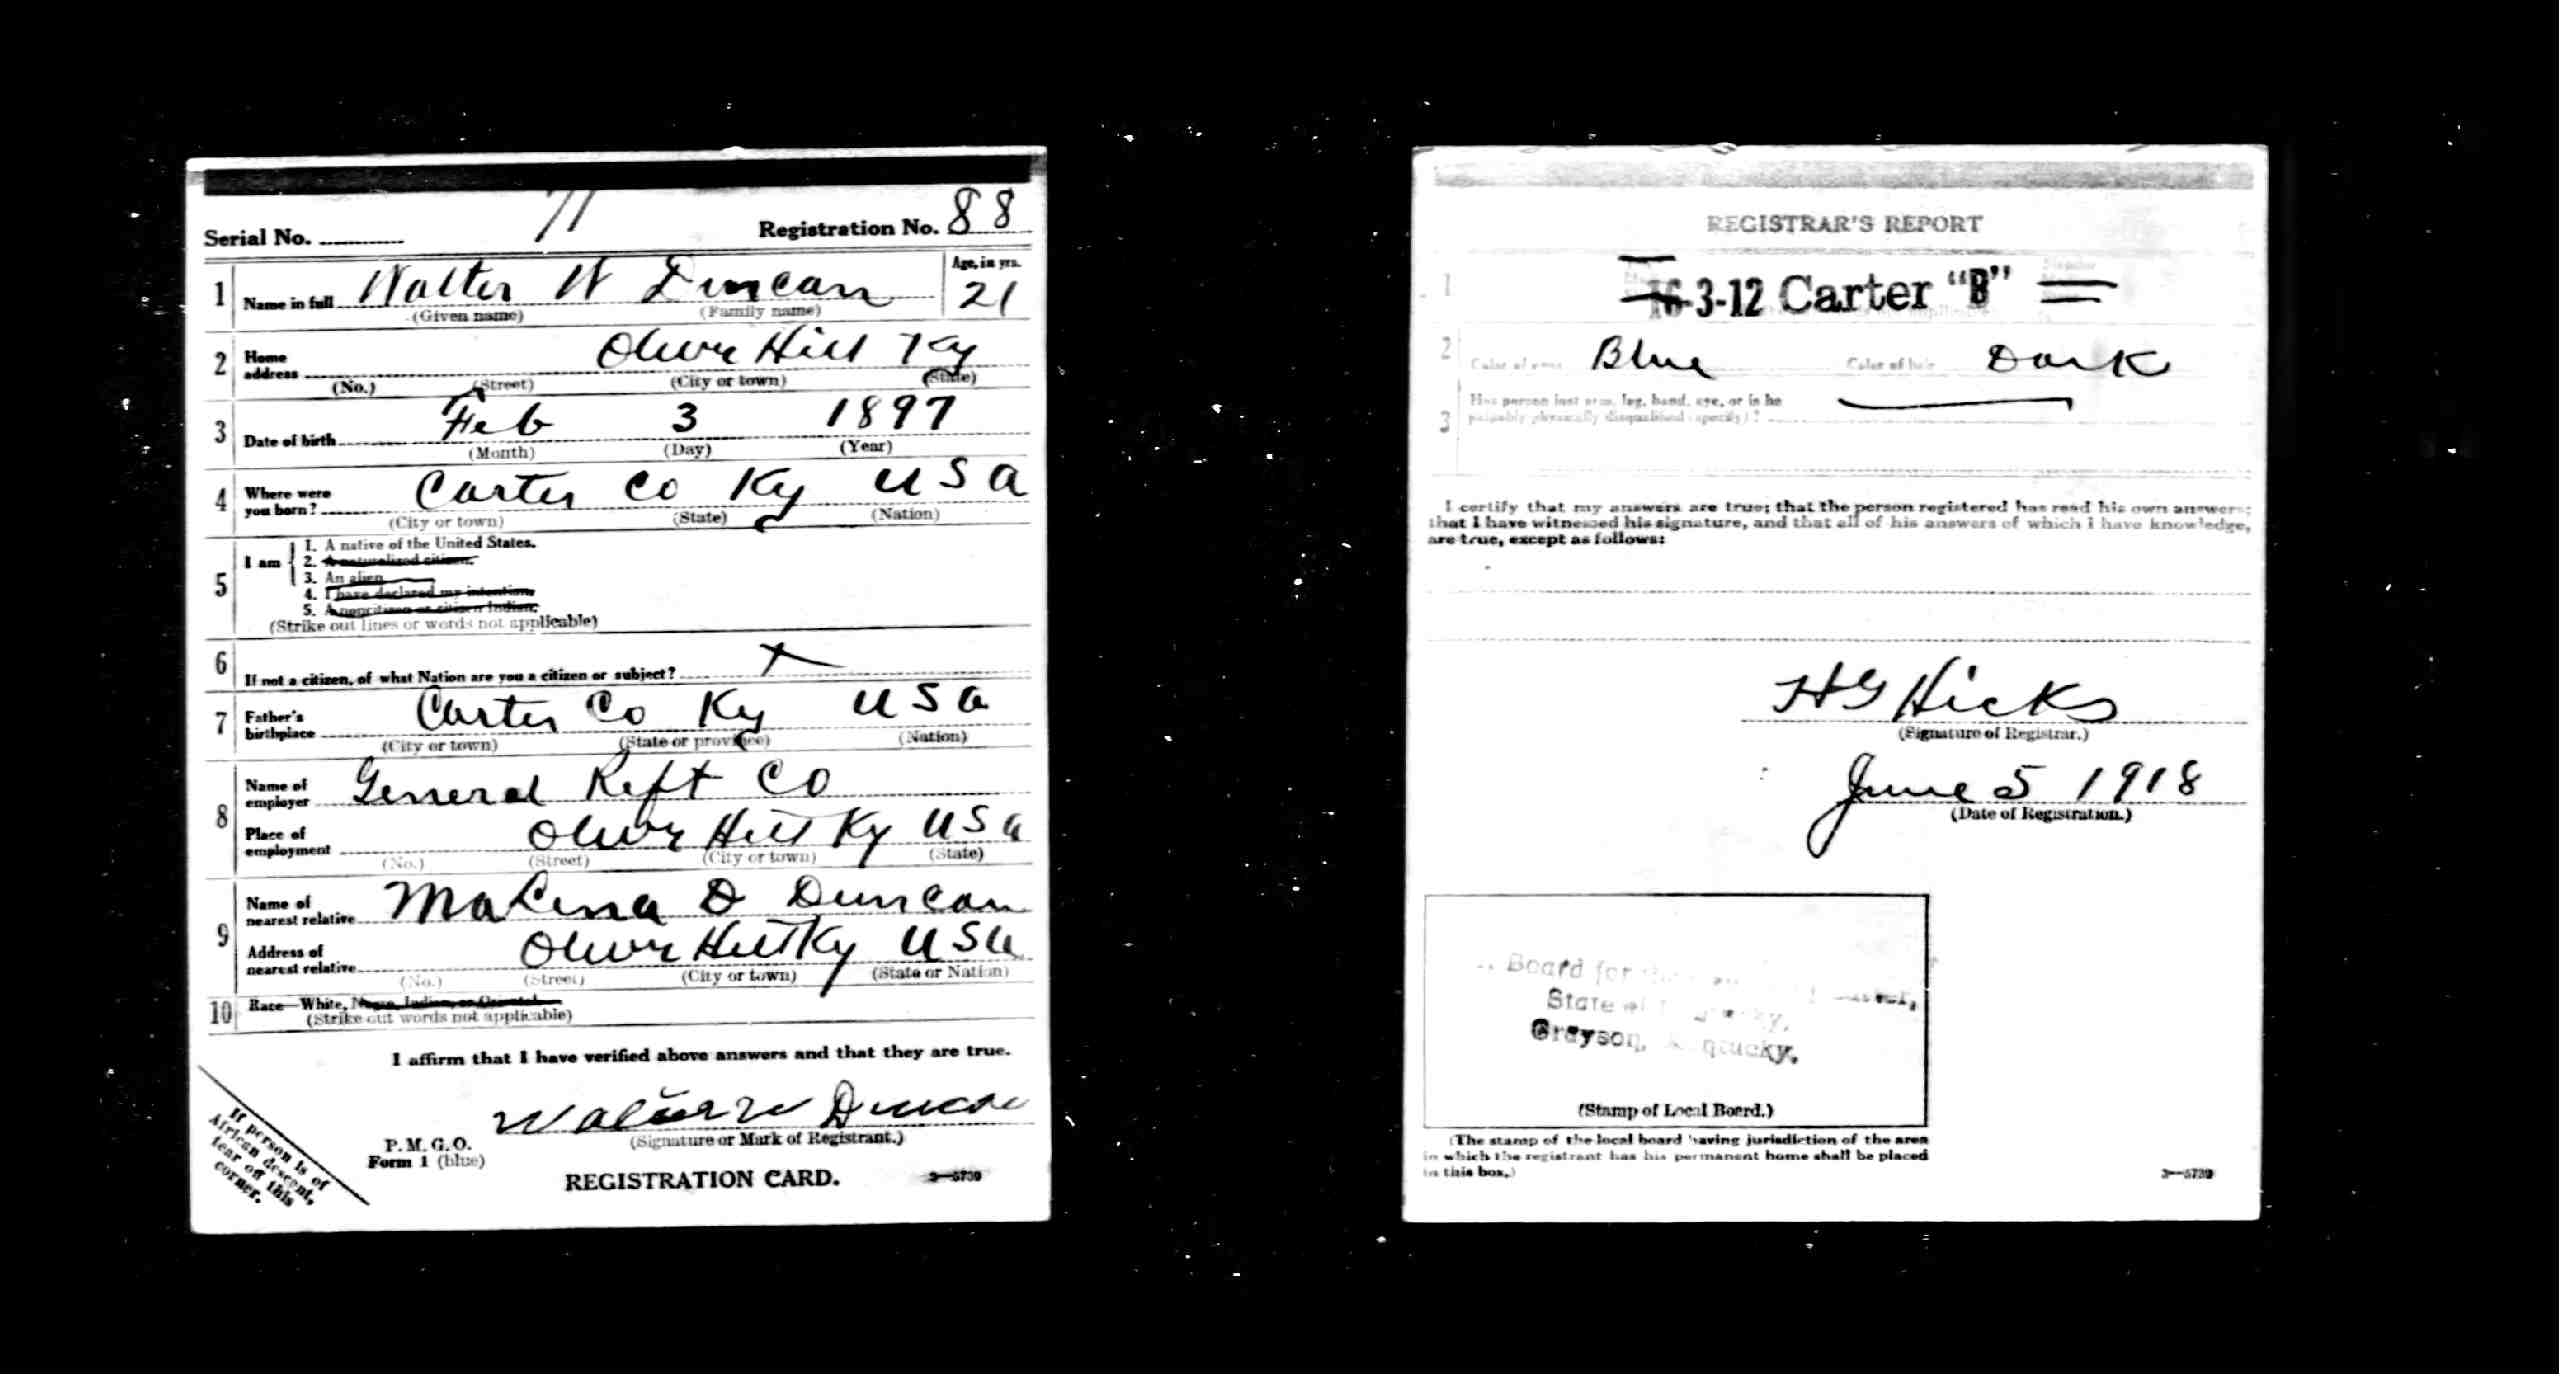 Serial No. ............ 71 Registration No. 88
1 Name in full Walter W Duncan
(Given name) (Family name)
Age, in yrs.
21
2 Home address Olive Hill Ky
(No.) (Street) (City or town) (State)
3 Date of birth Feb 3 1897
(Month) (Day) (Year)
4 Where were you born? Carter Co Ky USA
(City or town) (State) (Nation)
5 I am
1. A native of the United States.
2. A naturalized citizen.
3. An alien
4. I have declared my intention.
5. A noncitizen or citizen Indian.
(Strike out lines or words not applicable)
6 If not a citizen, of what Nation are you a citizen or subject?
7 Father's birthplace Carter Co Ky USA
(City or town) (State or province) (Nation)
8 Name of employer General Reft Co
Place of employment Olive Hill Ky USA
(No.) (Street) (City or town) (State)
9 Name of nearest relative Malena D Duncan
Address of nearest relative Olive Hill Ky USA
(No.) (Street) (City or town) (State or Nation)
10 Race—White, Negro, Indian, or Oriental
(Strike out words not applicable)
I affirm that I have verified above answers and that they are true.
Walter W Duncan
(Signature or Mark of Registrant.)
P. M. G. O.
Form 1 (blue)
REGISTRATION CARD. 3—5739
If person is
of African descent,
tear off this
corner.
REGISTRAR'S REPORT
1 16-3-12 Carter "B"
2 Color of eyes Blue Color of hair Dark
3 Has person lost arm, leg, hand, eye, or is he
palpably physically disqualified (specify)?
I certify that my answers are true; that the person registered has read his own answers;
that I have witnessed his signature, and that all of his answers of which I have knowledge,
are true, except as follows:
HG Hicks
(Signature of Registrar.)
June 5 1918
(Date of Registration.)
Board for
State of
Grayson, Kentucky.
(Stamp of Local Board.)
(The stamp of the local board having jurisdiction of the area
in which the registrant has his permanent home shall be placed
in this box.)
3—5739